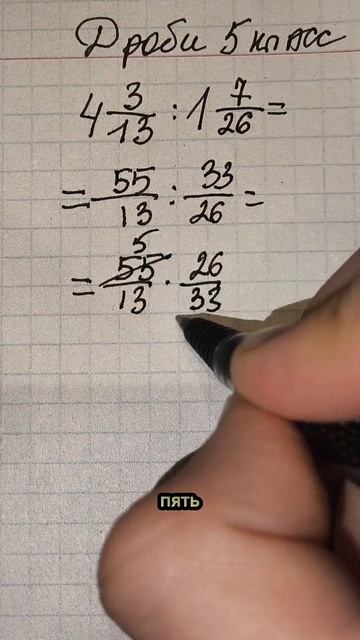 Дроби 5 класс
4 3/13 : 1 7/26 =
= 55/13 : 33/26 =
5
= 55/13 · 26/33
пять